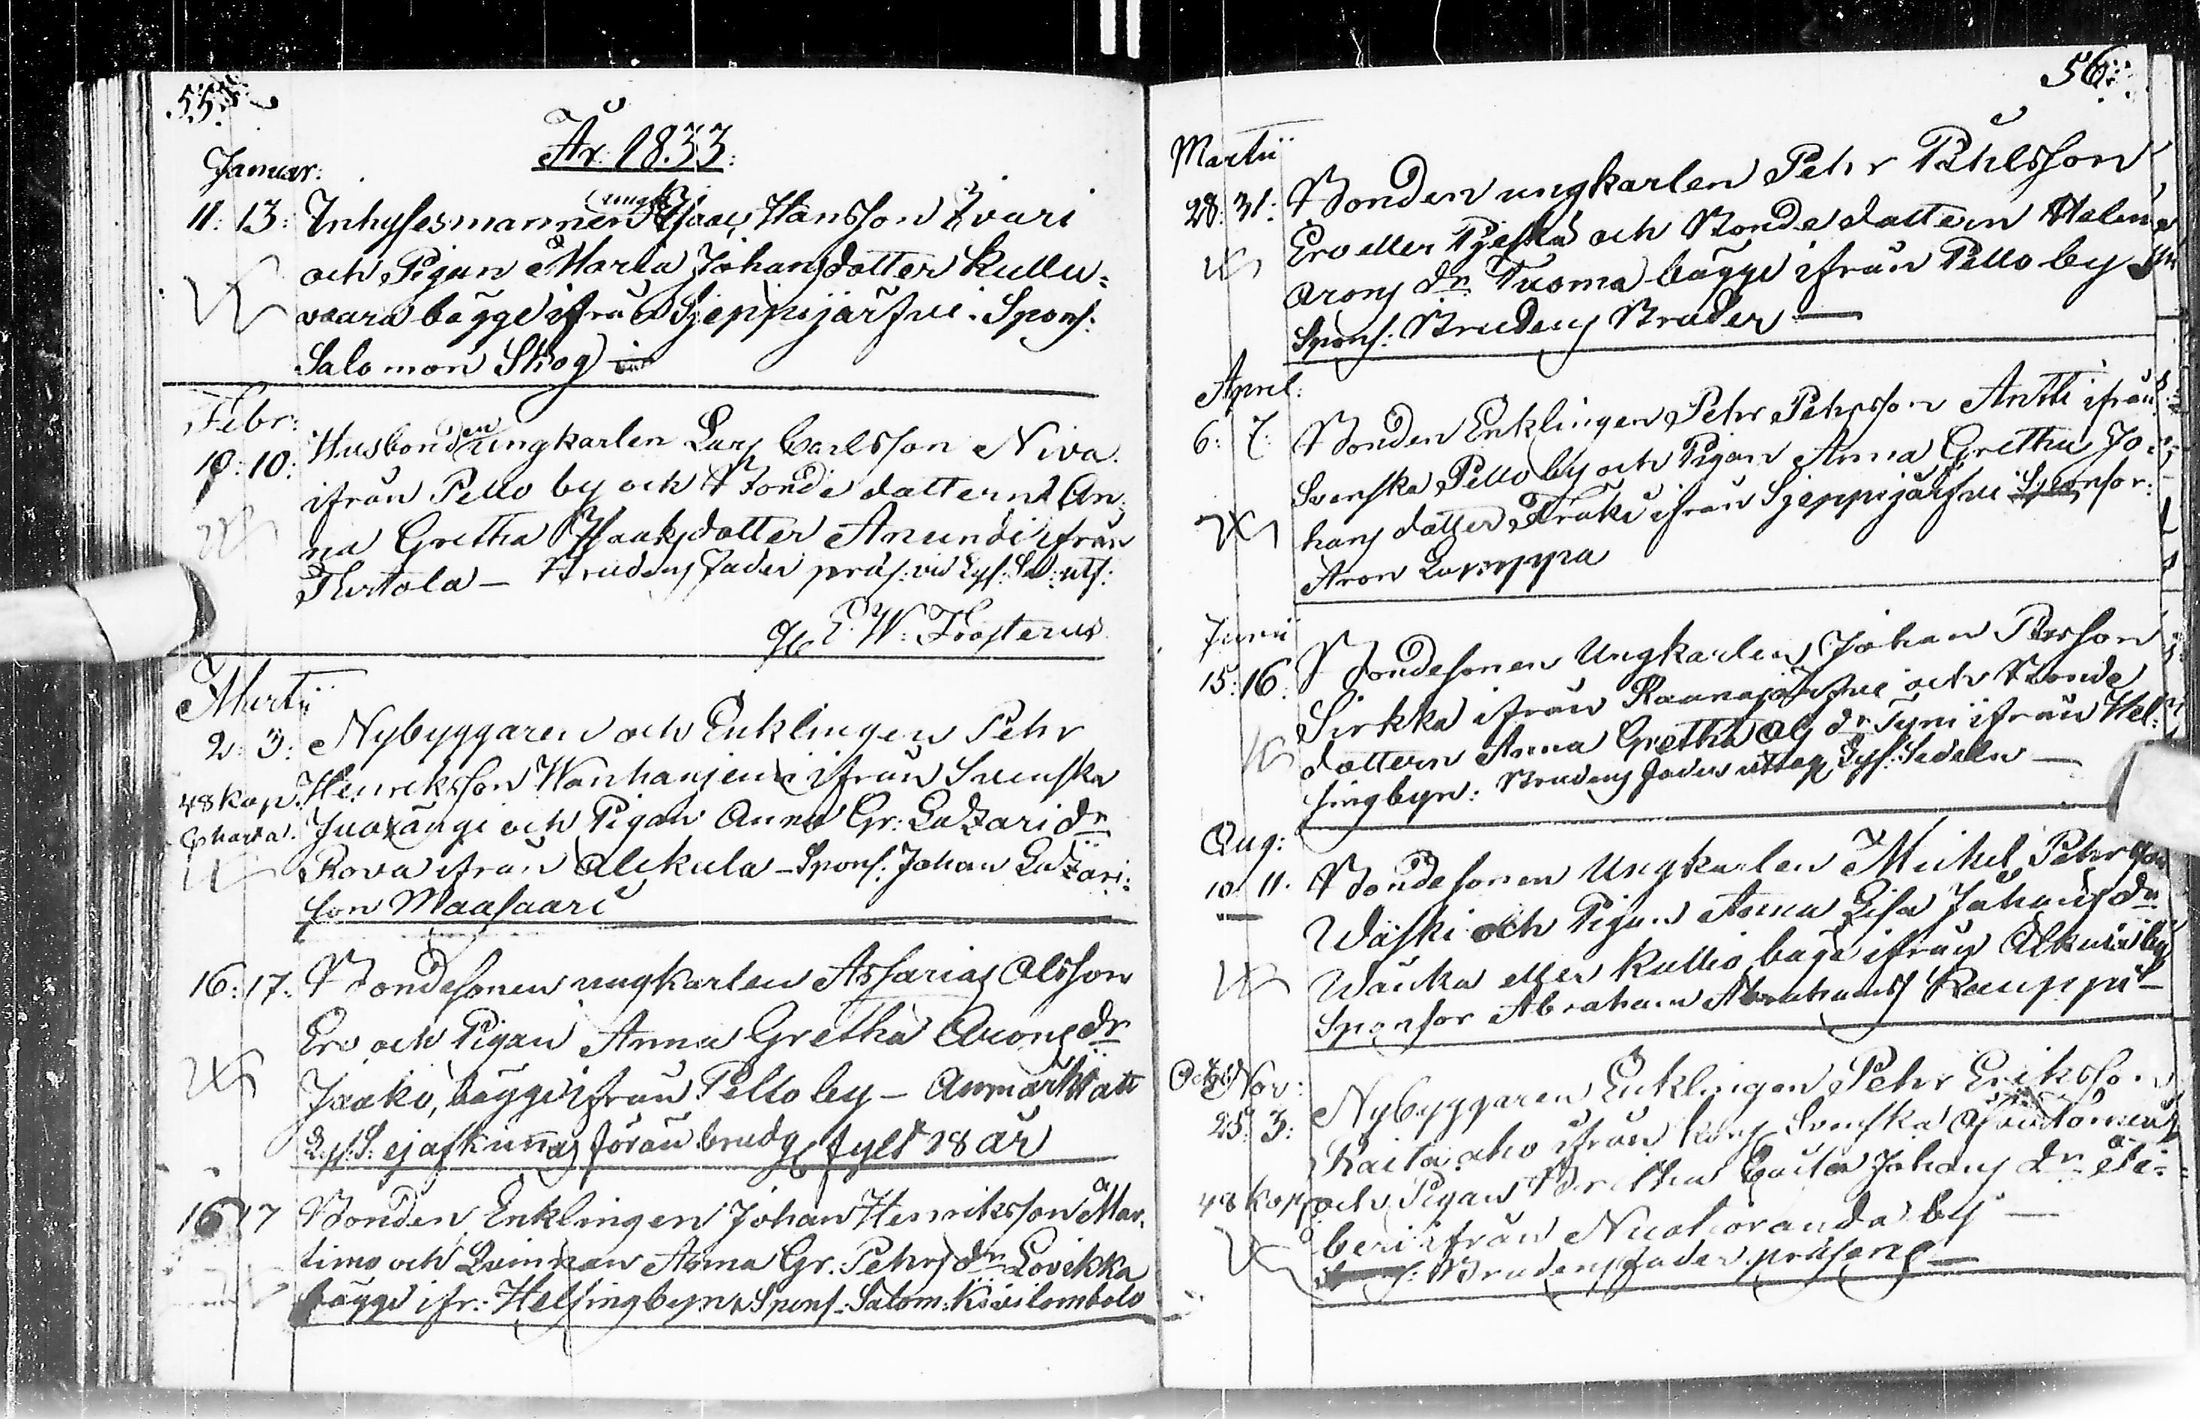 55.
År 1833.
Januar:
11: 13: Inhyssesmannen ungk: Isaac Hansson Ivari
och Pigan Maria Johansdotter Kullu-
vaara bägge ifrån Sjeppijärfvi. Spons:
Salomon Skog
Febr:
10: Husbonden ungkarlen Lars Carlsson Niva
ifrån Pello by och Bonde dattern An-
na Gretha Isaaksdotter Anundi ifrån
Turtola — Brudens fader präs: vid Lys: Sed: utf:
E. W. Frosterus
Martii
2: 3: Nybyggaren och Enklingen Pehr
48 kop. Henriksson Wanhanjen ifrån Svenska
Charta. Juoxängi och Pigan Anna Gr: Lazari dr
Rova ifrån Alkula — Spons: Johan Lazari-
son Maasaari
16: 17: Bondesonen ungkarlen Assarias Olsson
Ero och Pigan Anna Gretha Arons dr
Jaako, bägge ifrån Pello by — Anmärkt att
Lys: S. ej afkunnas förän brudg fylt 18 år
16 17 Bonden Enklingen Johan Henriksson Mar-
timo och Qvinnan Anna Gr. Pehrs dr Lovikka
bägge ifr: Helsingbyn. Spons. Salom: Kivilombolo
56.
Martii
28: 31: Bonden ungkarlen Pehr Påhlsson
Ero eller och Bonde dattern Helena
Arons dr Tuoma bägge ifrån Pello by
Spons: Brudens Broder —
April:
6: 7: Bonden Enklingen Pehr Pehrsson Antti ifrån
Svenska Pello by och Pigan Anna Gretha Jo-
hans datter ifrån Sjeppijärfvi Sponsor:
Aron
Junii
15: 16: Bondesonen Ungkarlen Johan Persson
Sirkka ifrån Raanajärfvi och Bonde
dattern Anna Gretha Ols dr ifrån Hel-
singbyn: Brudens fader uttog Lys: Sedeln —
Aug:
10: 11: Bondesonen Ungkarlen Mickel Pehrson
Wäski och Pigan Anna Lisa Johans dr
Wäuka eller Kullio, bäge ifrån Alkula by
Sponsor Abraham Abrahams: Rauppi —
Octob: Nov:
25: 3: Nybyggaren Enklingen Pehr Eriksson
Raitajako ifrån Svenska
48 kop. och Pigan Brita Kajsa Johans dr
ifrån Nuotioranda by —
Brudens fader präsens —